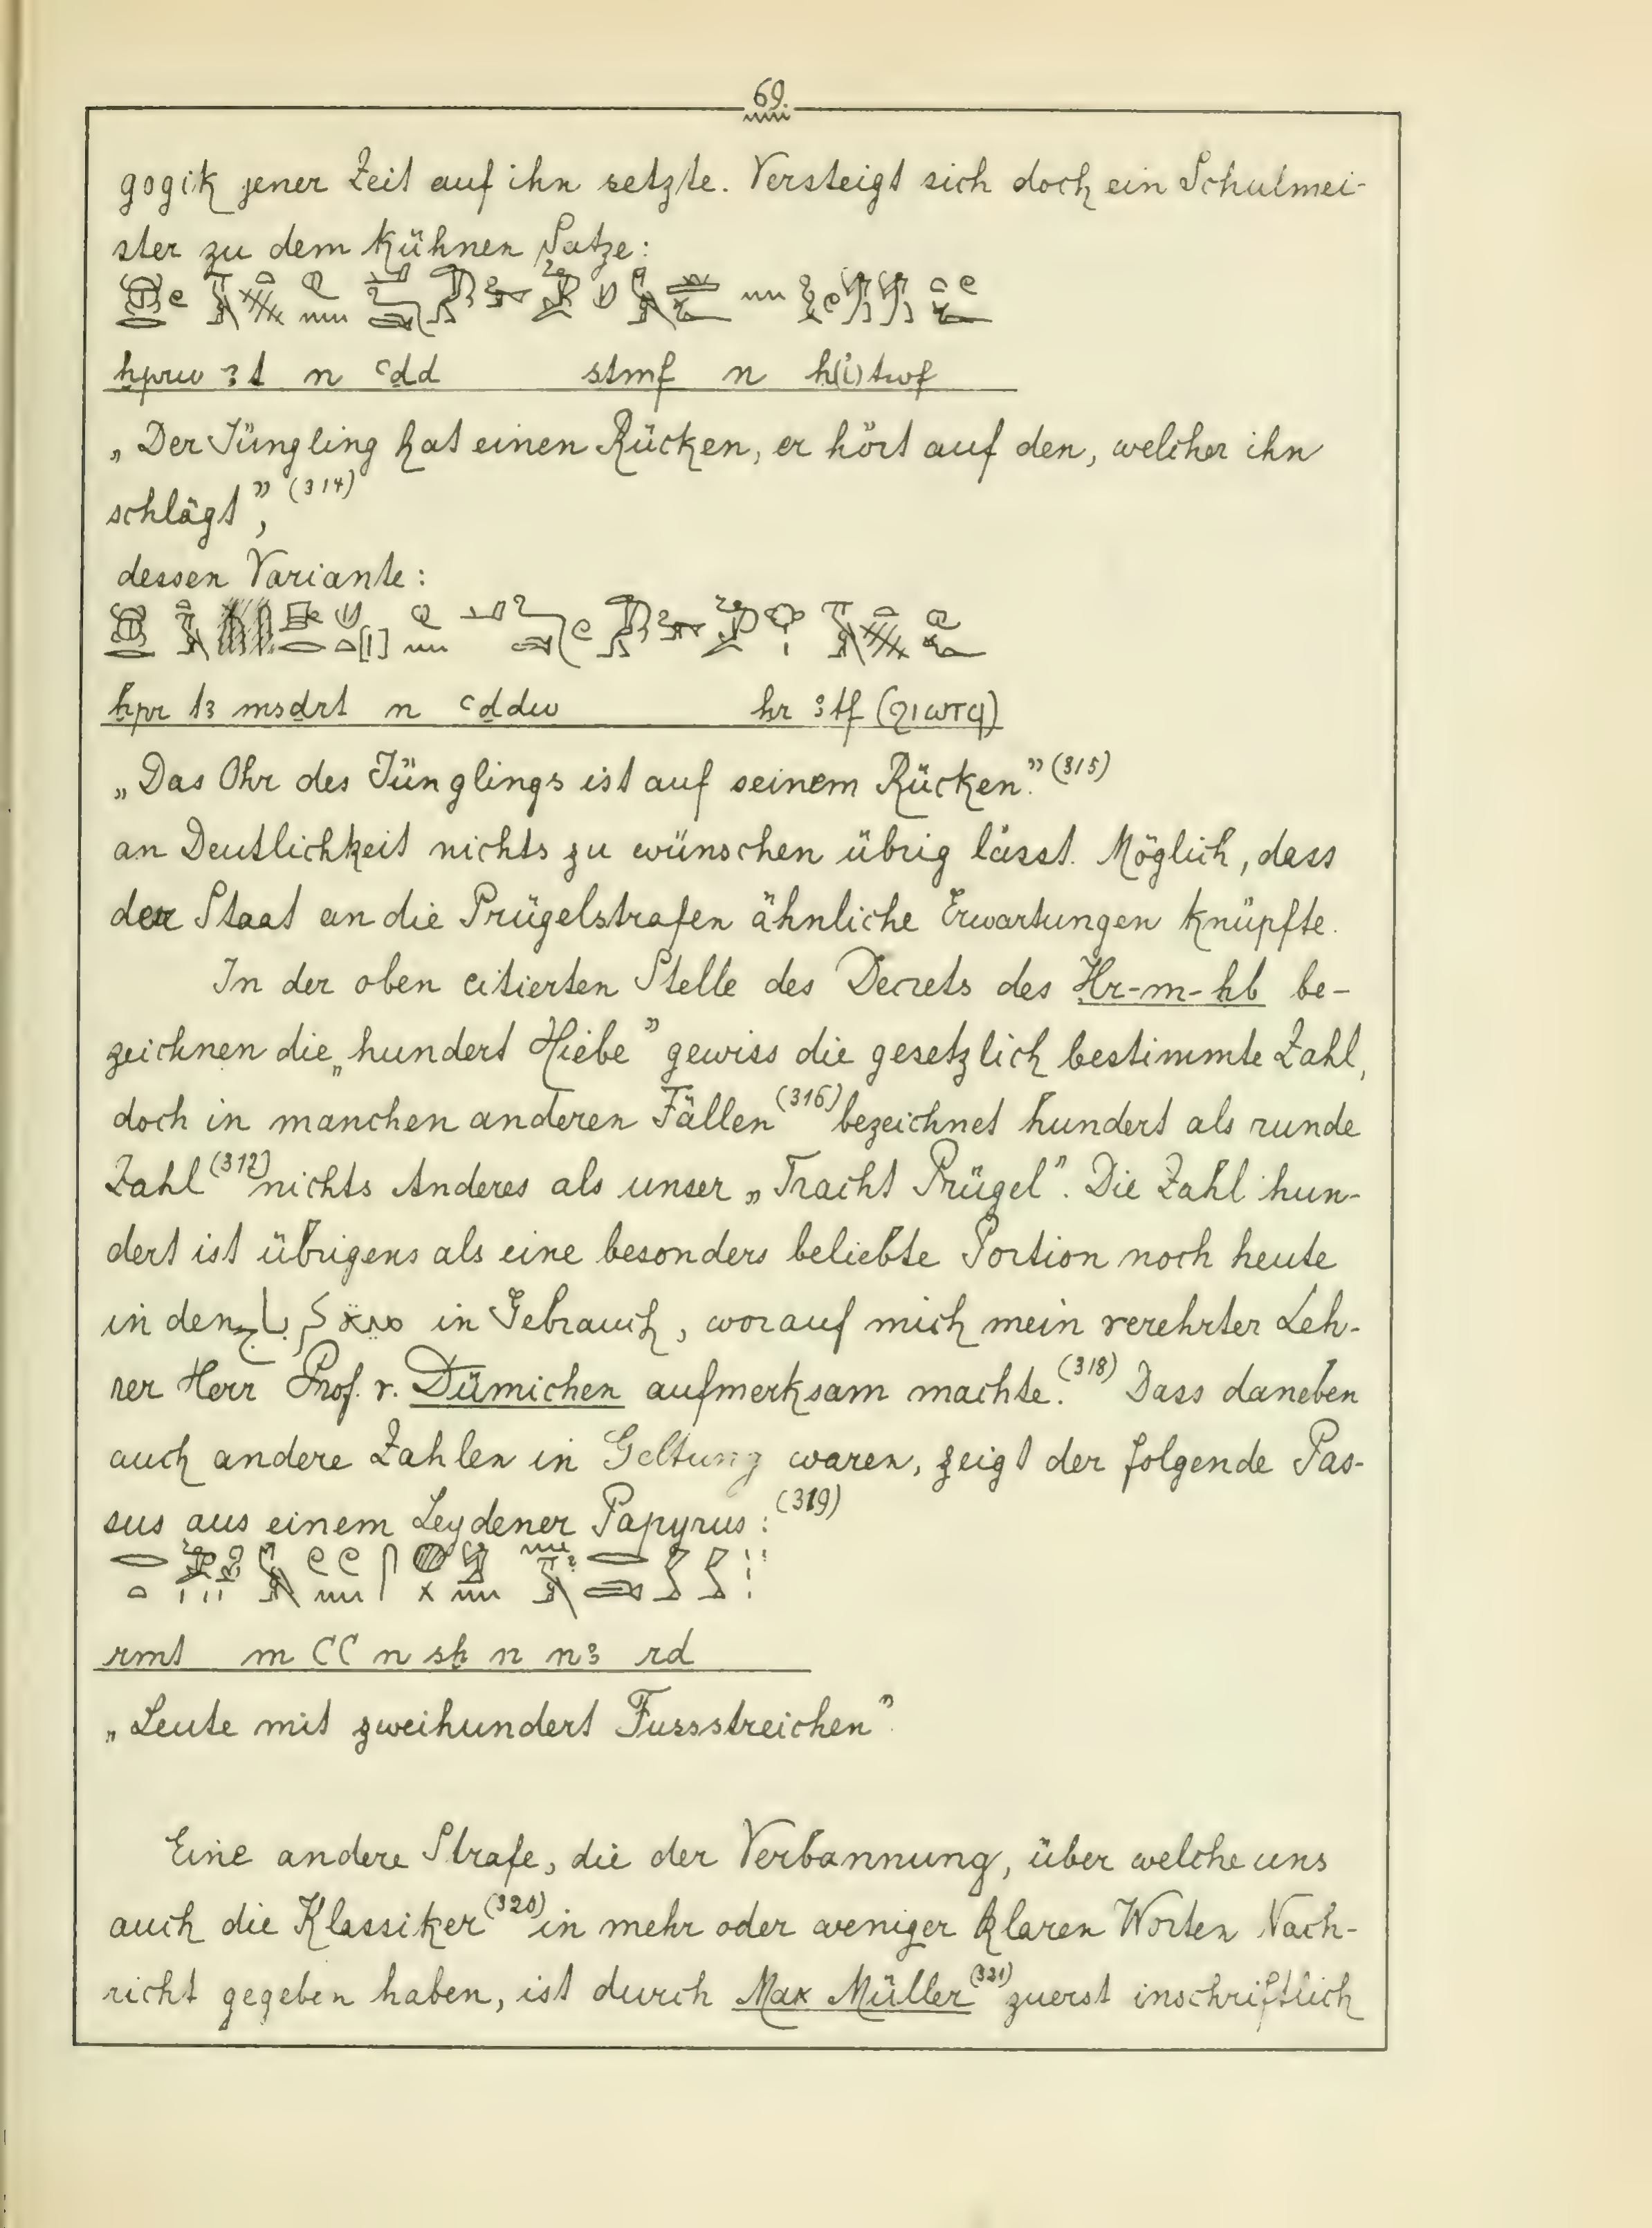 69.
gogik jener Zeit auf ihn setzte. Versteigt sich doch ein Schulmei-
ster zu dem kühnen Satze:
ḫprw ꜣt n ꜥḏd stmf n h(i)twf
„Der Jüngling hat einen Rücken, er hört auf den, welcher ihn
schlägt”, (314)
dessen Variante:
ḫpr tꜣ msḏrt n ꜥḏdw ḥr ꜣtf (ϩιωτϥ)
„Das Ohr des Jünglings ist auf seinem Rücken.” (315)
an Deutlichkeit nichts zu wünschen übrig lässt. Möglich, dass
der Staat an die Prügelstrafen ähnliche Erwartungen knüpfte.
In der oben citierten Stelle des Decrets des Ḥr-m-ḥb be-
zeichnen die „hundert Hiebe” gewiss die gesetzlich bestimmte Zahl,
doch in manchen anderen Fällen (316) bezeichnet hundert als runde
Zahl (317) nichts Anderes als unser „Tracht Prügel”. Die Zahl hun-
dert ist übrigens als eine besonders beliebte Portion noch heute
in den in Gebrauch, worauf mich mein verehrter Leh-
rer Herr Prof. r. Dümichen aufmerksam machte. (318) Dass daneben
auch andere Zahlen in Geltung waren, zeigt der folgende Pas-
sus aus einem Leydener Papyrus: (319)
rmt m CC n sḫ n nꜣ rd
„Leute mit zweihundert Fussstreichen”.
Eine andere Strafe, die der Verbannung, über welche uns
auch die Klassiker (320) in mehr oder weniger klaren Worten Nach-
richt gegeben haben, ist durch Max Müller (321) zuerst inschriftlich